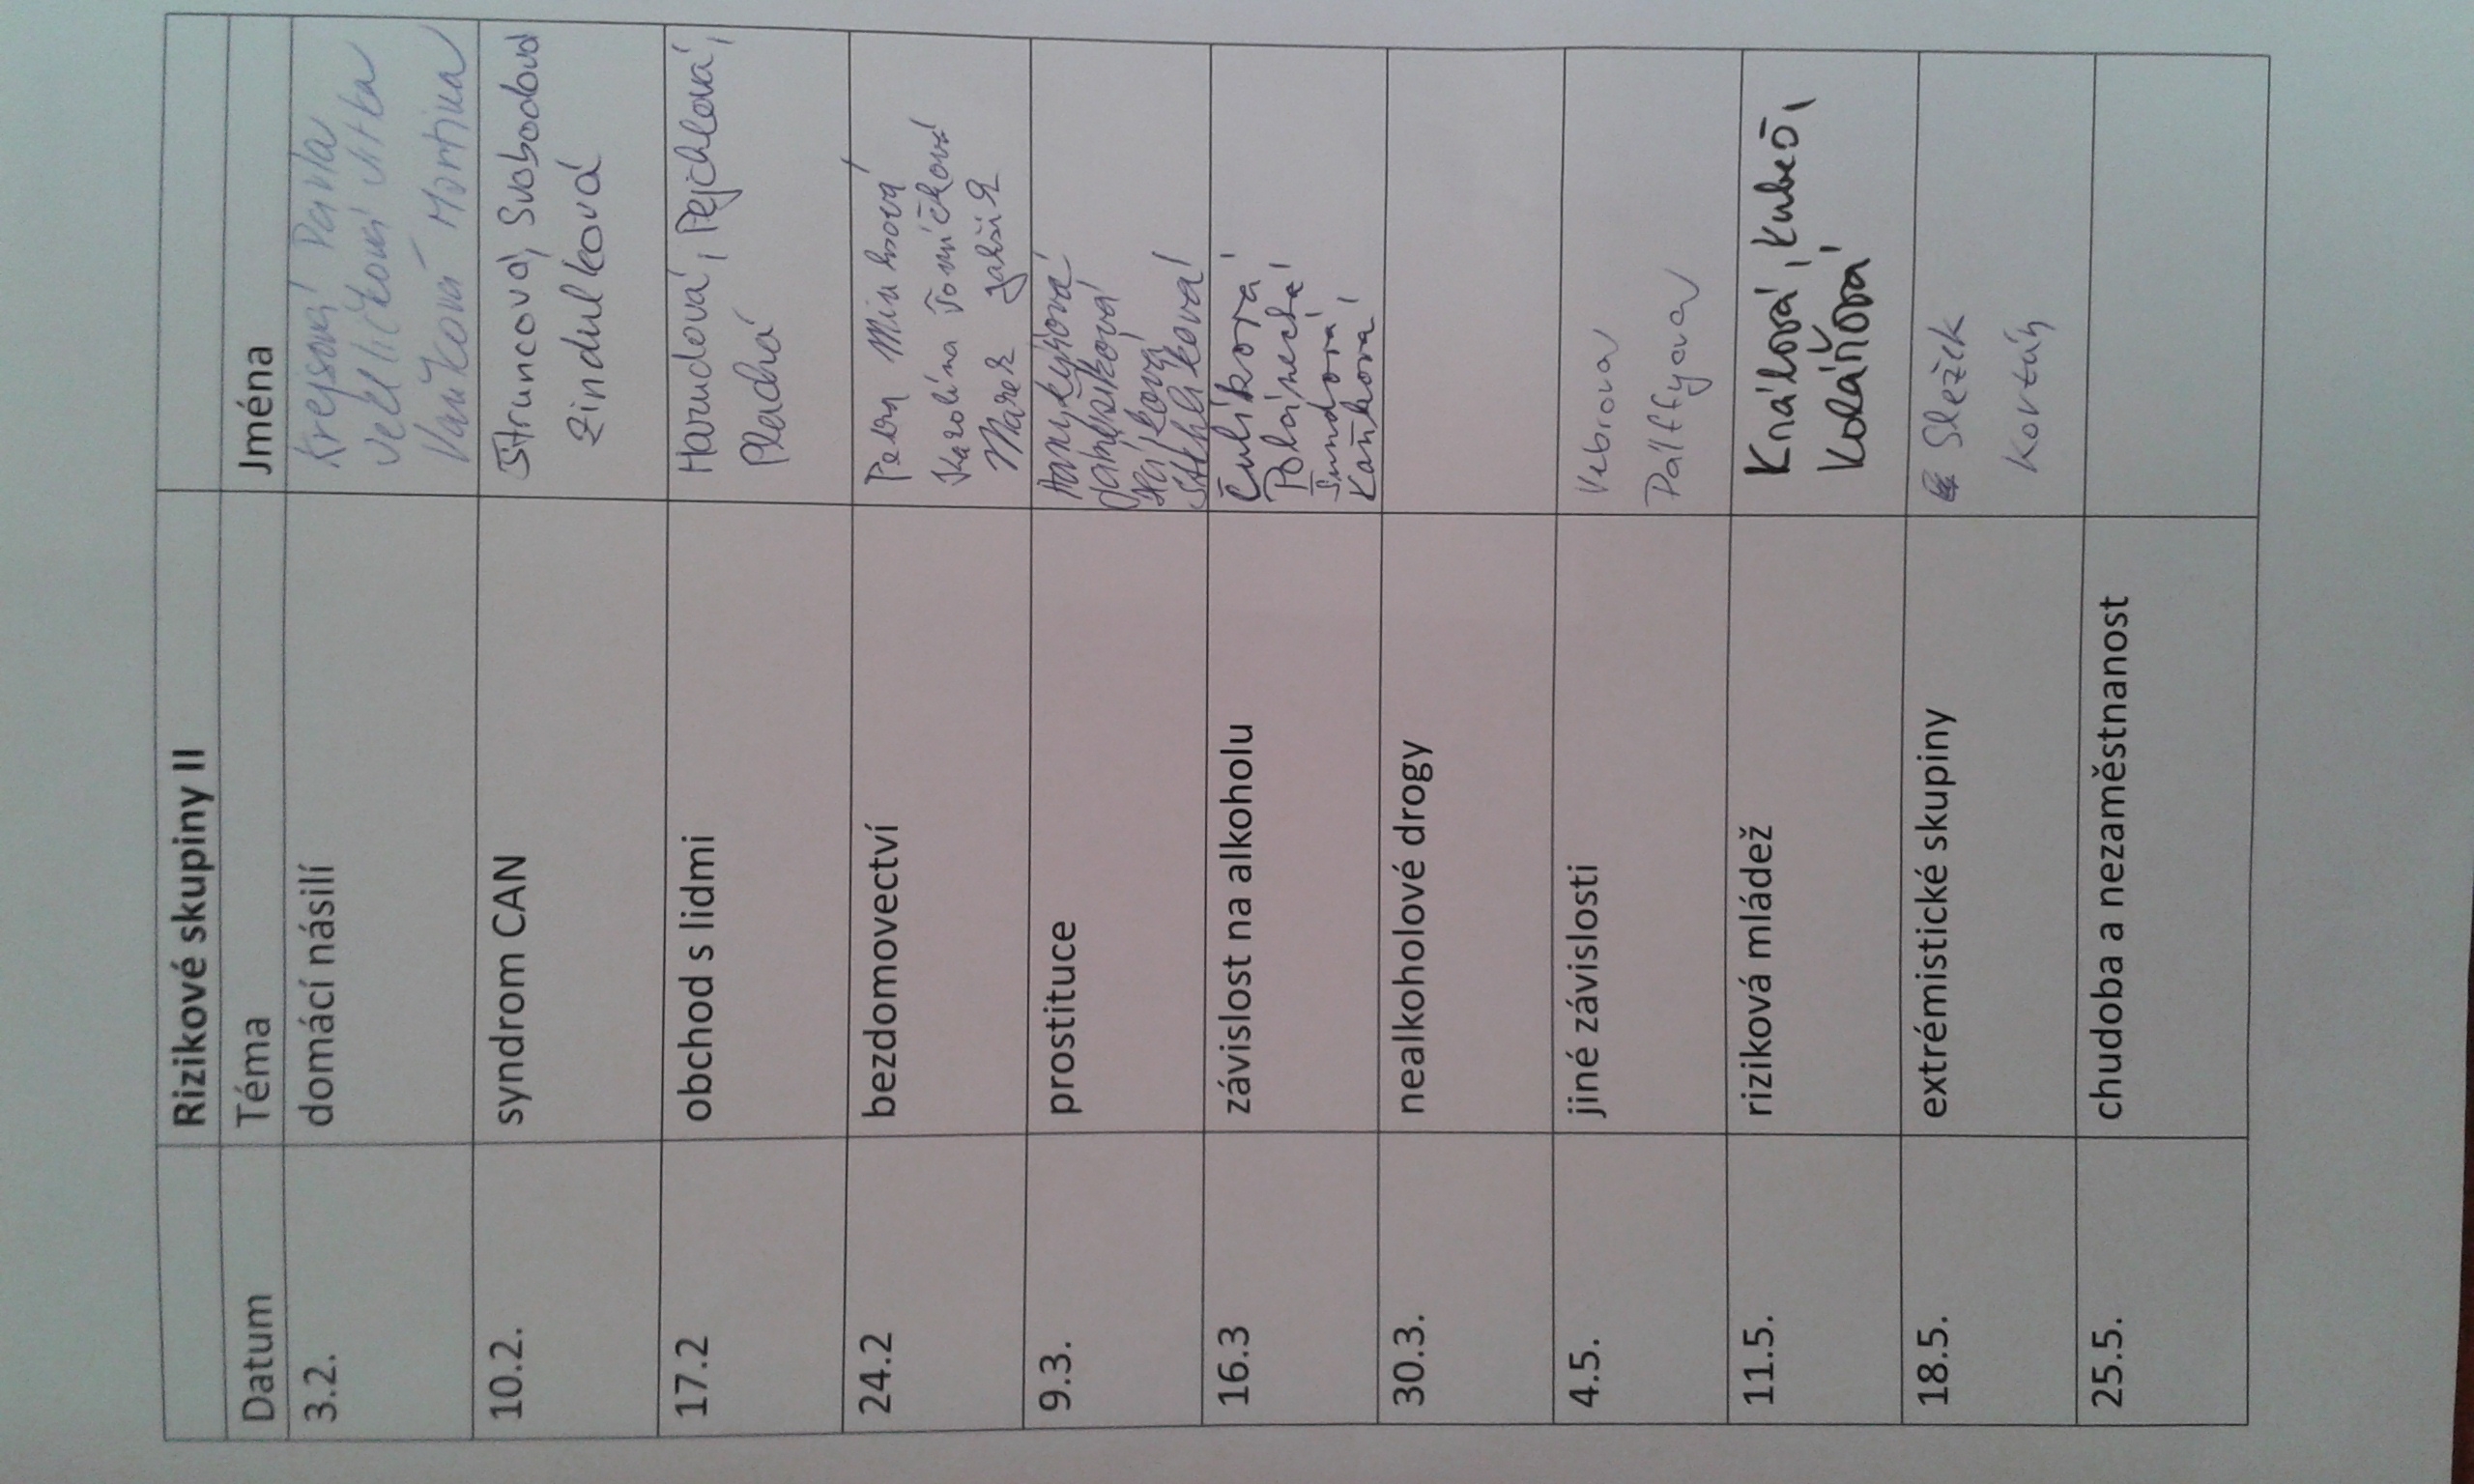 Rizikové skupiny II
Datum Téma Jména
3.2. domácí násilí Krejsová Pavla
Veličková Jitka
Vaňková Martina
10.2. syndrom CAN Štruncová, Svobodová
Zindulková
17.2 obchod s lidmi Harudová, Pejchlová,
Plachá
24.2 bezdomovectví Petra
Karolína Tomíčková
Marek
9.3. prostituce
Hájková
Stehlíková
16.3 závislost na alkoholu Čulíková
Kaňková
30.3. nealkoholové drogy
4.5. jiné závislosti Vebrova
Pálffyova
11.5. riziková mládež Knálová,
Kolářová
18.5. extrémistické skupiny Slezik
25.5. chudoba a nezaměstnanost